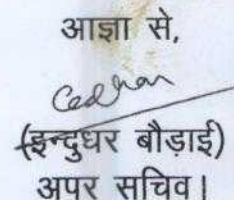 आज्ञा से,
(इन्दुधर बौड़ाई)
अपर सचिव।